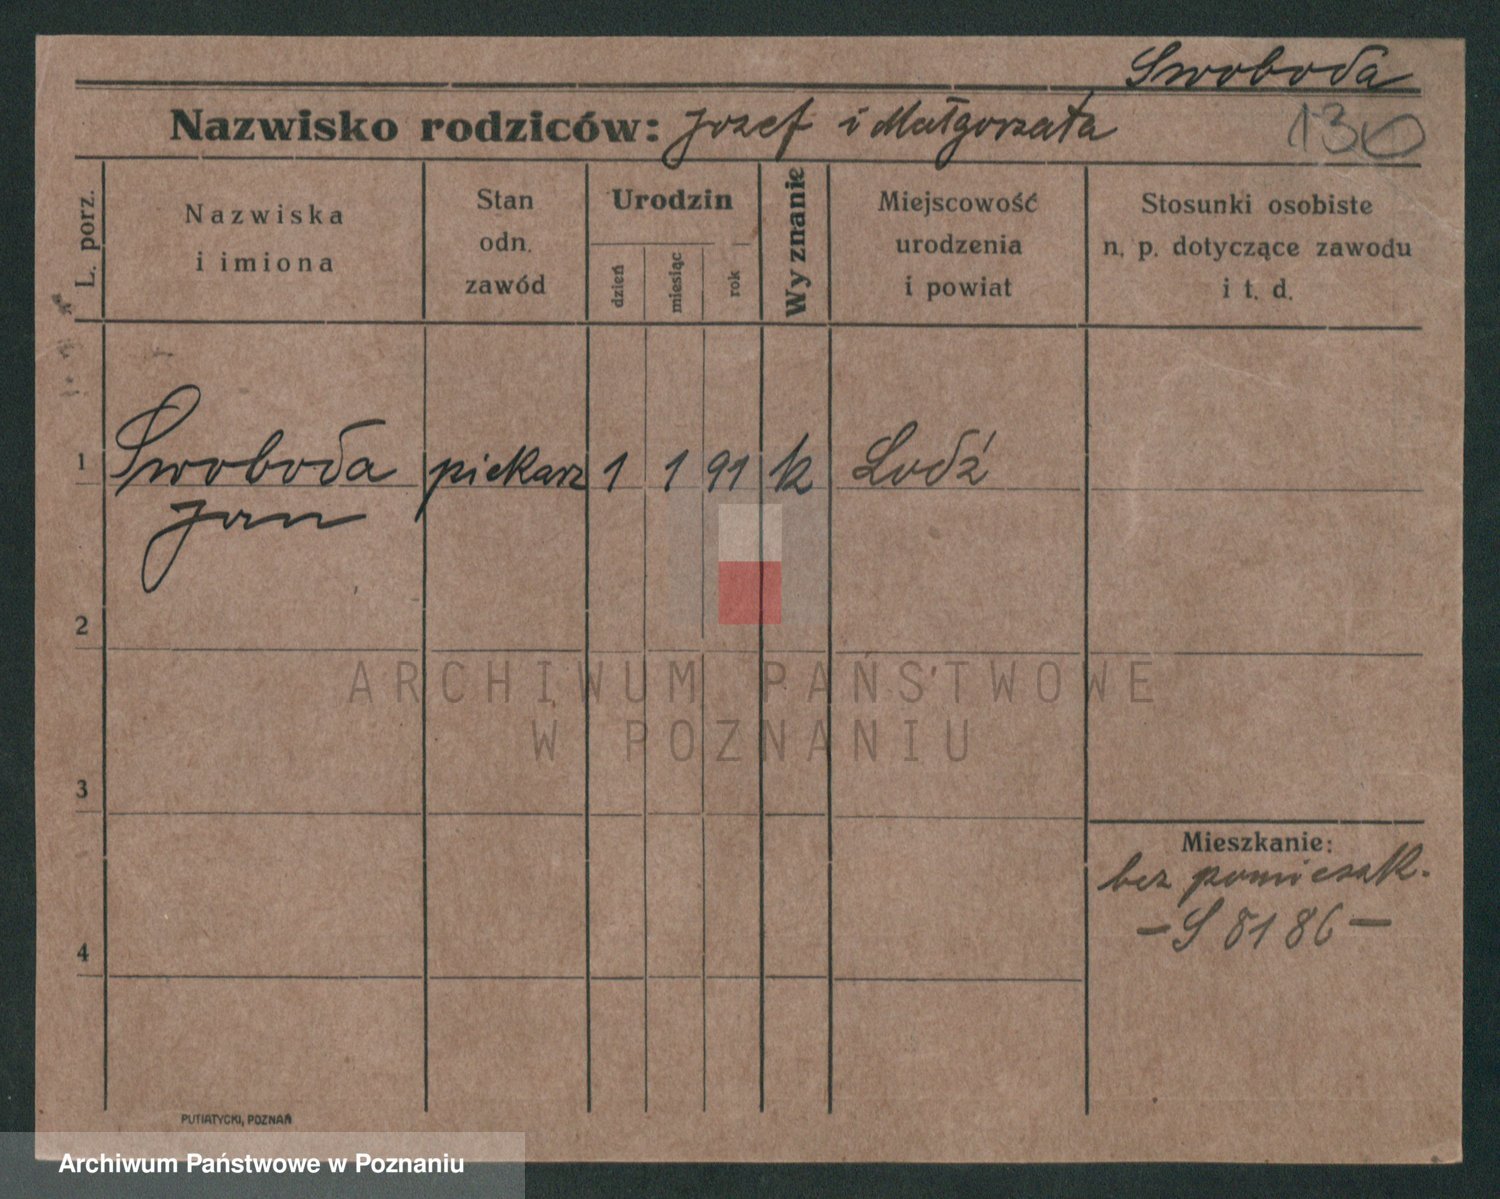 Swoboda
Nazwisko rodziców: Jozef i Małgorzata
130
L. porz.
Nazwiska
i imiona
Stan
odn.
zawód
Urodzin
dzień
miesiąc
rok
Wyznanie
Miejscowość
urodzenia
i powiat
Stosunki osobiste
n. p. dotyczące zawodu
i t. d.
1 Swoboda piekarz 1 1 91 k Lodź
Jan
2
ARCHIWUM PAŃSTWOWE
W POZNANIU
3
Mieszkanie:
bez pomieszk.
— S 8186 —
4
PUTIATYCKI, POZNAŃ
Archiwum Państwowe w Poznaniu